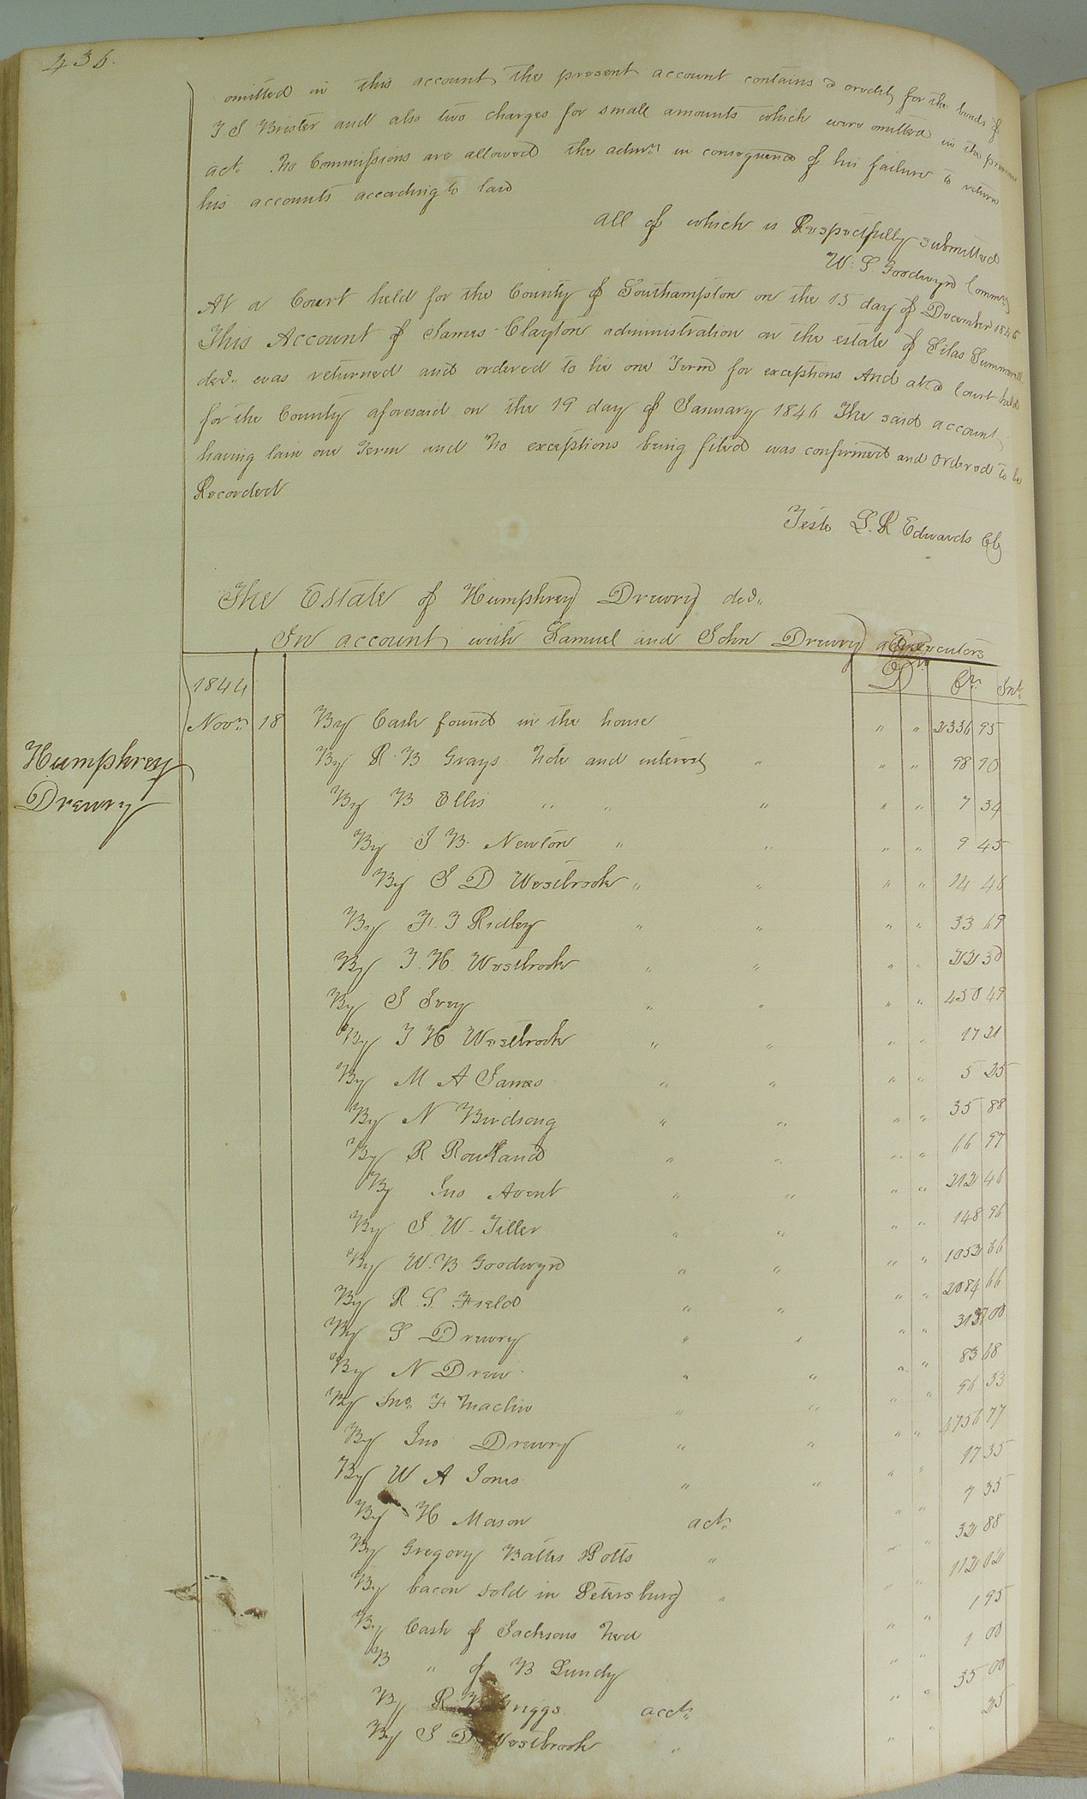 436.
omitted in this account, the present account contains a credit for the bonds of
J S Brister and also two charges for small amounts which were omitted in the
act. No Commissions are allowed the admr. in consequence of his failure to return
his accounts according to law
all of which is Respectfully submitted
W. S Goodwyn Commr
At a Court held for the County of Southampton on the 15 day of December 1845
This Account of James Clayton administration on the estate of Silas Summerell
decd. was returned and ordered to lie one Term for exceptions And at a Court held
for the County aforesaid on the 19 day of January 1846 The said account
having lain one Term and No exceptions being filed was confirmed and Ordered to be
Recorded
Teste L. R Edwards Clk
The Estate of Humphrey Drewry decd.
In account with Samuel and John Drewry Executors
Dr Cr. Int.
1844
Novr. 18 By Cash found in the house " " 2336 95
Humphrey
Drewry
By R. B Grays Note and interest " " " 98 70
By B Ellis " " " " " 7 34
By J B. Newton " " " " 9 45
By S D Westbrook " " " " 14 46
By F. J Ridley " " " " 33 69
By J. H. Westbrook " " " " 22 30
By J Ivey " " " " 450 49
By J H Westbrook " " " " 17 21
By M A James " " " " 5 25
By N Birdsong " " " " 35 88
By R Rowland " " " " 66 97
By Jno Avent " " " " 212 46
By J. W. Tiller " " " " 148 96
By W. B Goodwyn " " " " 1052 66
By R S. Field " " " " 2084 66
By S Drewry " " " " 00
By N Drew " " " " 83 68
By Jno. F. Maclin " " " " 96 33
By Jno Drewry " " " " 6756 77
By W A Jones " " " " 17 35
By H Mason act. " " 7 35
By Gregory Battes Potts " " " 32 88
By bacon sold in Petersburg " " " 112 02
By Cash of Jacksons " " 1 95
B " of B Lundy " " 1 00
By R Griggs acct. " " 35 00
By S D Westbrook " " " 25